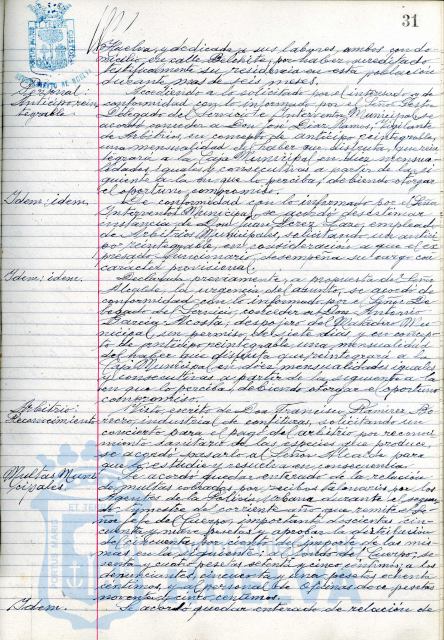 31
Huelva, y dedicada a sus labores, ambos con do-
micilio en calle Belchite, por haber acreditado
testificamente su residencia en esta población
durante mas de seis meses.
Personal: Anticipo rein-
tegrable.
Accediendo a lo solicitado por el interesado y de
conformidad con lo informado por el Señor Gestor
Delegado del Servicio e Interventor Municipal, se
acordó conceder a Don José Diaz Ramos, Vigilante
de Arbitrios, en concepto de anticipo reintegrable,
una mensualidad del haber que disfruta, que rein-
tegrará a la Caja Municipal en diez mensua-
lidades iguales y consecutivas a partir de la si-
guiente a la en que lo perciba, debiendo otorgar
el oportuno compromiso.
Idem; idem.
De conformidad con lo informado por el Señor
Interventor Municipal, se acordó desestimar
instancia de Don Juan Perez Caro, empleado
de Arbitrios Municipales, solicitando un antici-
po reintegrable, en consideración a que el ex-
presado funcionario desempeña su cargo con
caracter provisional.
Idem; idem.
Declarada previamente, a propuesta del Señor
Alcalde, la urgencia del asunto, se acordó de
conformidad con lo informado por el Señor De-
legado del Servicio, conceder a Don Antonio
Garcia Acosta, despojero del Matadero Mu-
nicipal, un permiso de siete dias, y en concep-
to de anticipo reintegrable una mensualidad
del haber que disfruta que reintegrará a la
Caja Municipal en doce mensualidades iguales
y consecutivas a partir de la siguiente a la
en que lo perciba, debiendo otorgar el oportuno
compromiso.
Arbitrio:
Reconocimiento
Visto escrito de Don Francisco Ramirez
industrial de confituras, solicitando un
concierto para el pago del arbitrio por reconoci-
miento sanitario de las especies que produce,
se acordó pasarlo al Señor Alcalde para
que lo estudie y resuelva en consecuencia.
Multas Muni-
cipales.
Se acordó quedar enterado de la relación
de multas cobradas por recibos talonarios por los
Agentes de la Policia Urbana durante el segun-
do trimestre del corriente año que remite el Se-
ñor Jefe del Cuerpo, importante doscientas cin-
cuenta y nueve pesetas y aprobar la distribución
del cincuenta por ciento del importe de las mis-
mas en la siguiente: Al fondo del Cuerpo, se-
senta y cuatro pesetas setenta y cinco céntimos; a los
denunciantes, cincuenta y una pesetas ochenta
céntimos, y al personal de Oficinas doce pesetas
noventa y cinco céntimos.
Idem.
Se acordó quedar enterado de relación de